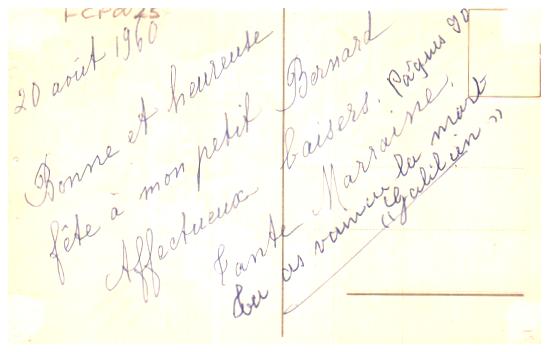 FCP0025
20 août 1960
Bonne et heureuse
fête à mon petit Bernard
Affectueux baisers.
Tante Marraine.
Pâques 90
tu as vaincu la mort
"Galiléen"